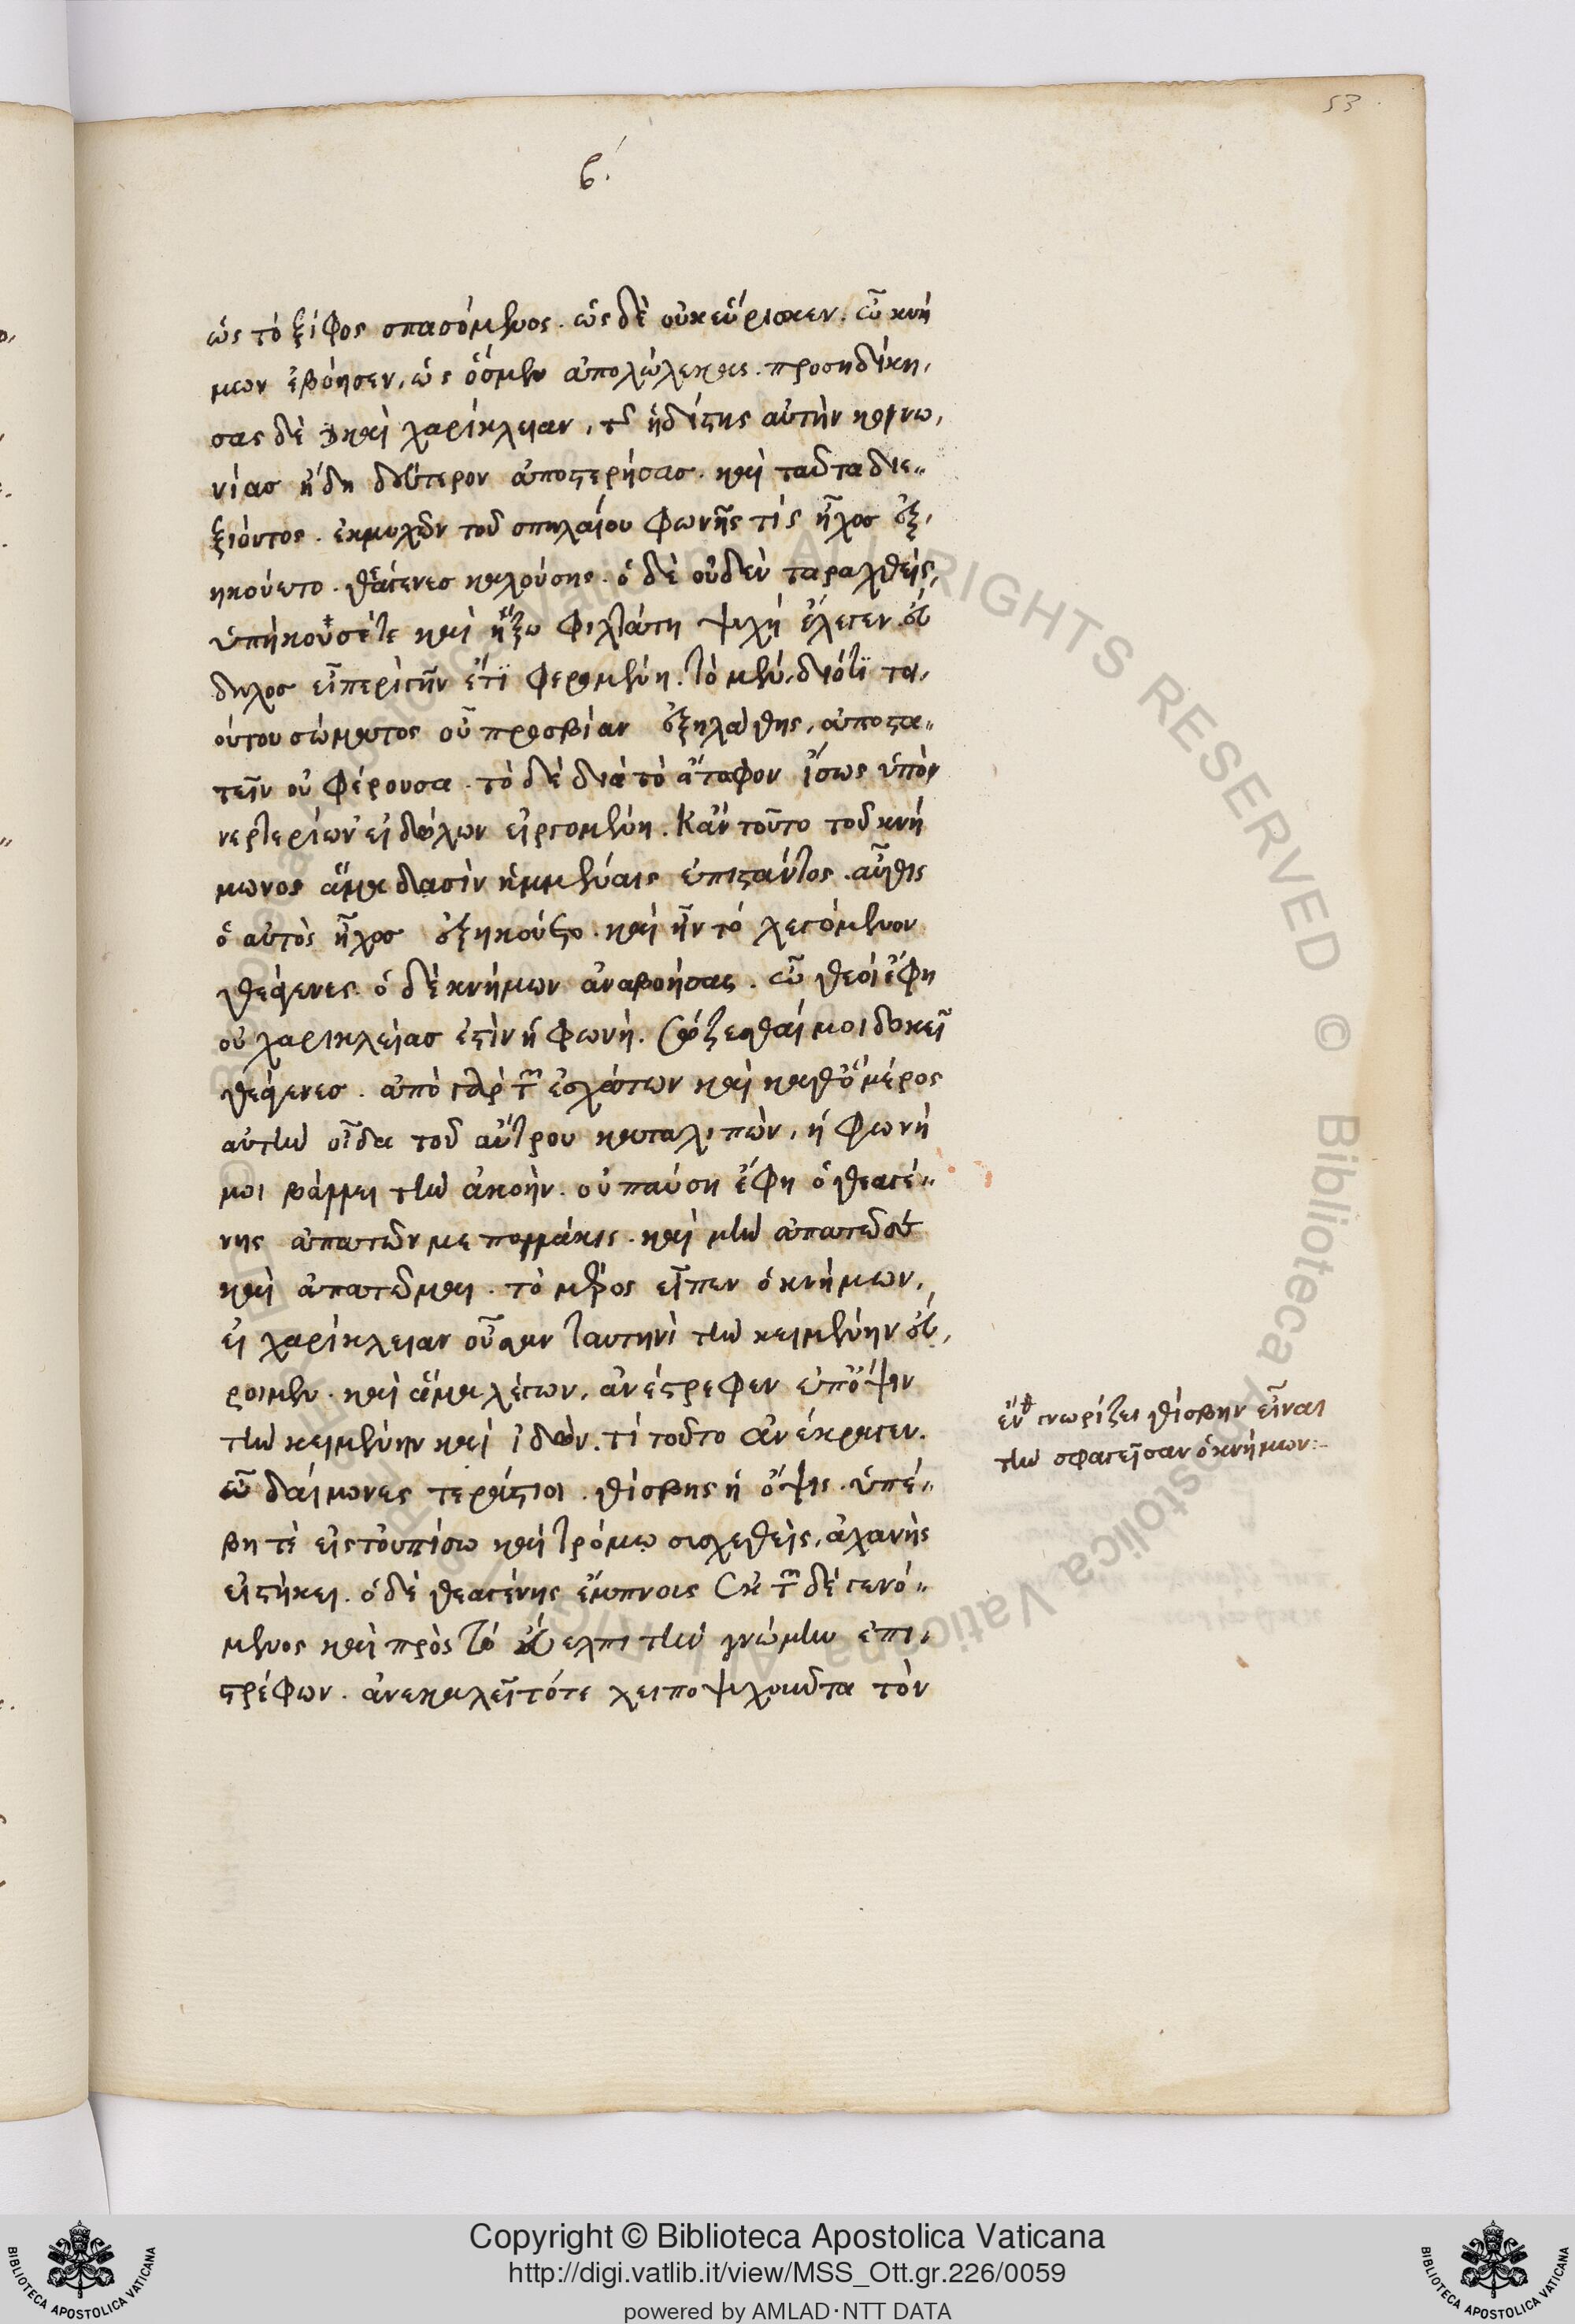 53
β´.
ὡς τὸ ξίφος σπασόμενος. ὡς δὲ οὐχ εὕρισκεν. ὦ κνή
μων ἐβόησεν, ὡς ὅσμεν ἀπολώλεκας. προσηδίκη,
σας δὲ καὶ χαρίκλειαν, τῆς ἡδίστης αὐτὴν κοινω,
νίας ἤδη δεύτερον ἀποστερήσας. καὶ ταῦτα διε„
ξιόντος. ἐκ μυχῶν τοῦ σπηλαίου φωνῆς τίς ἦχος ἐξ,
ηκούετο. θεάγενες καλούσης. ὁ δὲ οὐδὲν ταραχθεὶς,
ὑπήκουσέ τε καὶ ἥξω φιλτάτη ψυχή ἔλεγεν. εὔ
δηλος εἶ περὶ γῆν ἔτι φερομένη. τὸ μὲν, διότι τοι,
ούτου σώματος οὗ πρὸς βίαν ἐξηλάθης, ἀποστα„
τεῖν οὐ φέρουσα. τὸ δὲ διὰ τὸ ἄταφον ἴσως ὑπὸ
νερτερίων εἰδώλων εἰργομένη. κἀν τοῦτο τοῦ κνή
μωνος ἅμα δᾳσὶν ἡμμέναις ἐπιστάντος. αὖθις
ὁ αὐτὸς ἦχος ἐξηκούετο. καὶ ἦν τὸ λεγόμενον
θεάγενες. ὁ δὲ κνήμων ἀναβοήσας. ὦ θεοὶ ἔφη
οὐ χαρικλείας ἐστὶν ἡ φωνή. σώζεσθαί μοι δοκεῖ
θεάγενες. ἀπὸ γὰρ τῶν ἐσχάτων καὶ καθ᾽ ὃ μέρος
αὐτὴν οἶδα τοῦ ἄντρου καταλιπὼν, ἡ φωνή
μοι βάλλει τὴν ἀκοήν. οὐ παύσῃ ἔφη ὁ θεαγέ„
νης ἀπατῶν με πολλάκις. καὶ μὴν ἀπατῶ σέ
καὶ ἀπατῶμαι. τὸ μέρος εἶπεν ὁ κνήμων,
εἰ χαρίκλειαν οὖσαν ταυτηνὶ τὴν κειμένην εὕ,
ροιμεν. καὶ ἅμα λέγων, ἀνέστρεφεν ἐπ᾽ ὄψιν
τὴν κειμένην καὶ ἰδών. τί τοῦτο ἀνέκραγεν.
ὦ δαίμονες τεράστιοι. θίσβης ἡ ὄψις. ὑπέ„
βη τὲ εἰς τοὐπίσω καὶ τρόμῳ συσχεθεὶς, ἀχανὴς
εἱστήκει. ὁ δὲ θεαγένης ἔμπνους ἐκ τῶν δὲ γενό„
μενος καὶ πρὸς τὸ εὔελπι τὴν γνώμην ἐπι,
στρέφων. ἀνεκαλεῖτό τε λειποψυχοῦντα τὸν
γνωρίζει θίσβην εἶναι
τὴν σφαγεῖσαν ὁ κνήμων:-
Copyright © Biblioteca Apostolica Vaticana
http://digi.vatlib.it/view/MSS_Ott.gr.226/0059
powered by AMLAD·NTT DATA
BIBLIOTECA APOSTOLICA VATICANA
BIBLIOTECA APOSTOLICA VATICANA